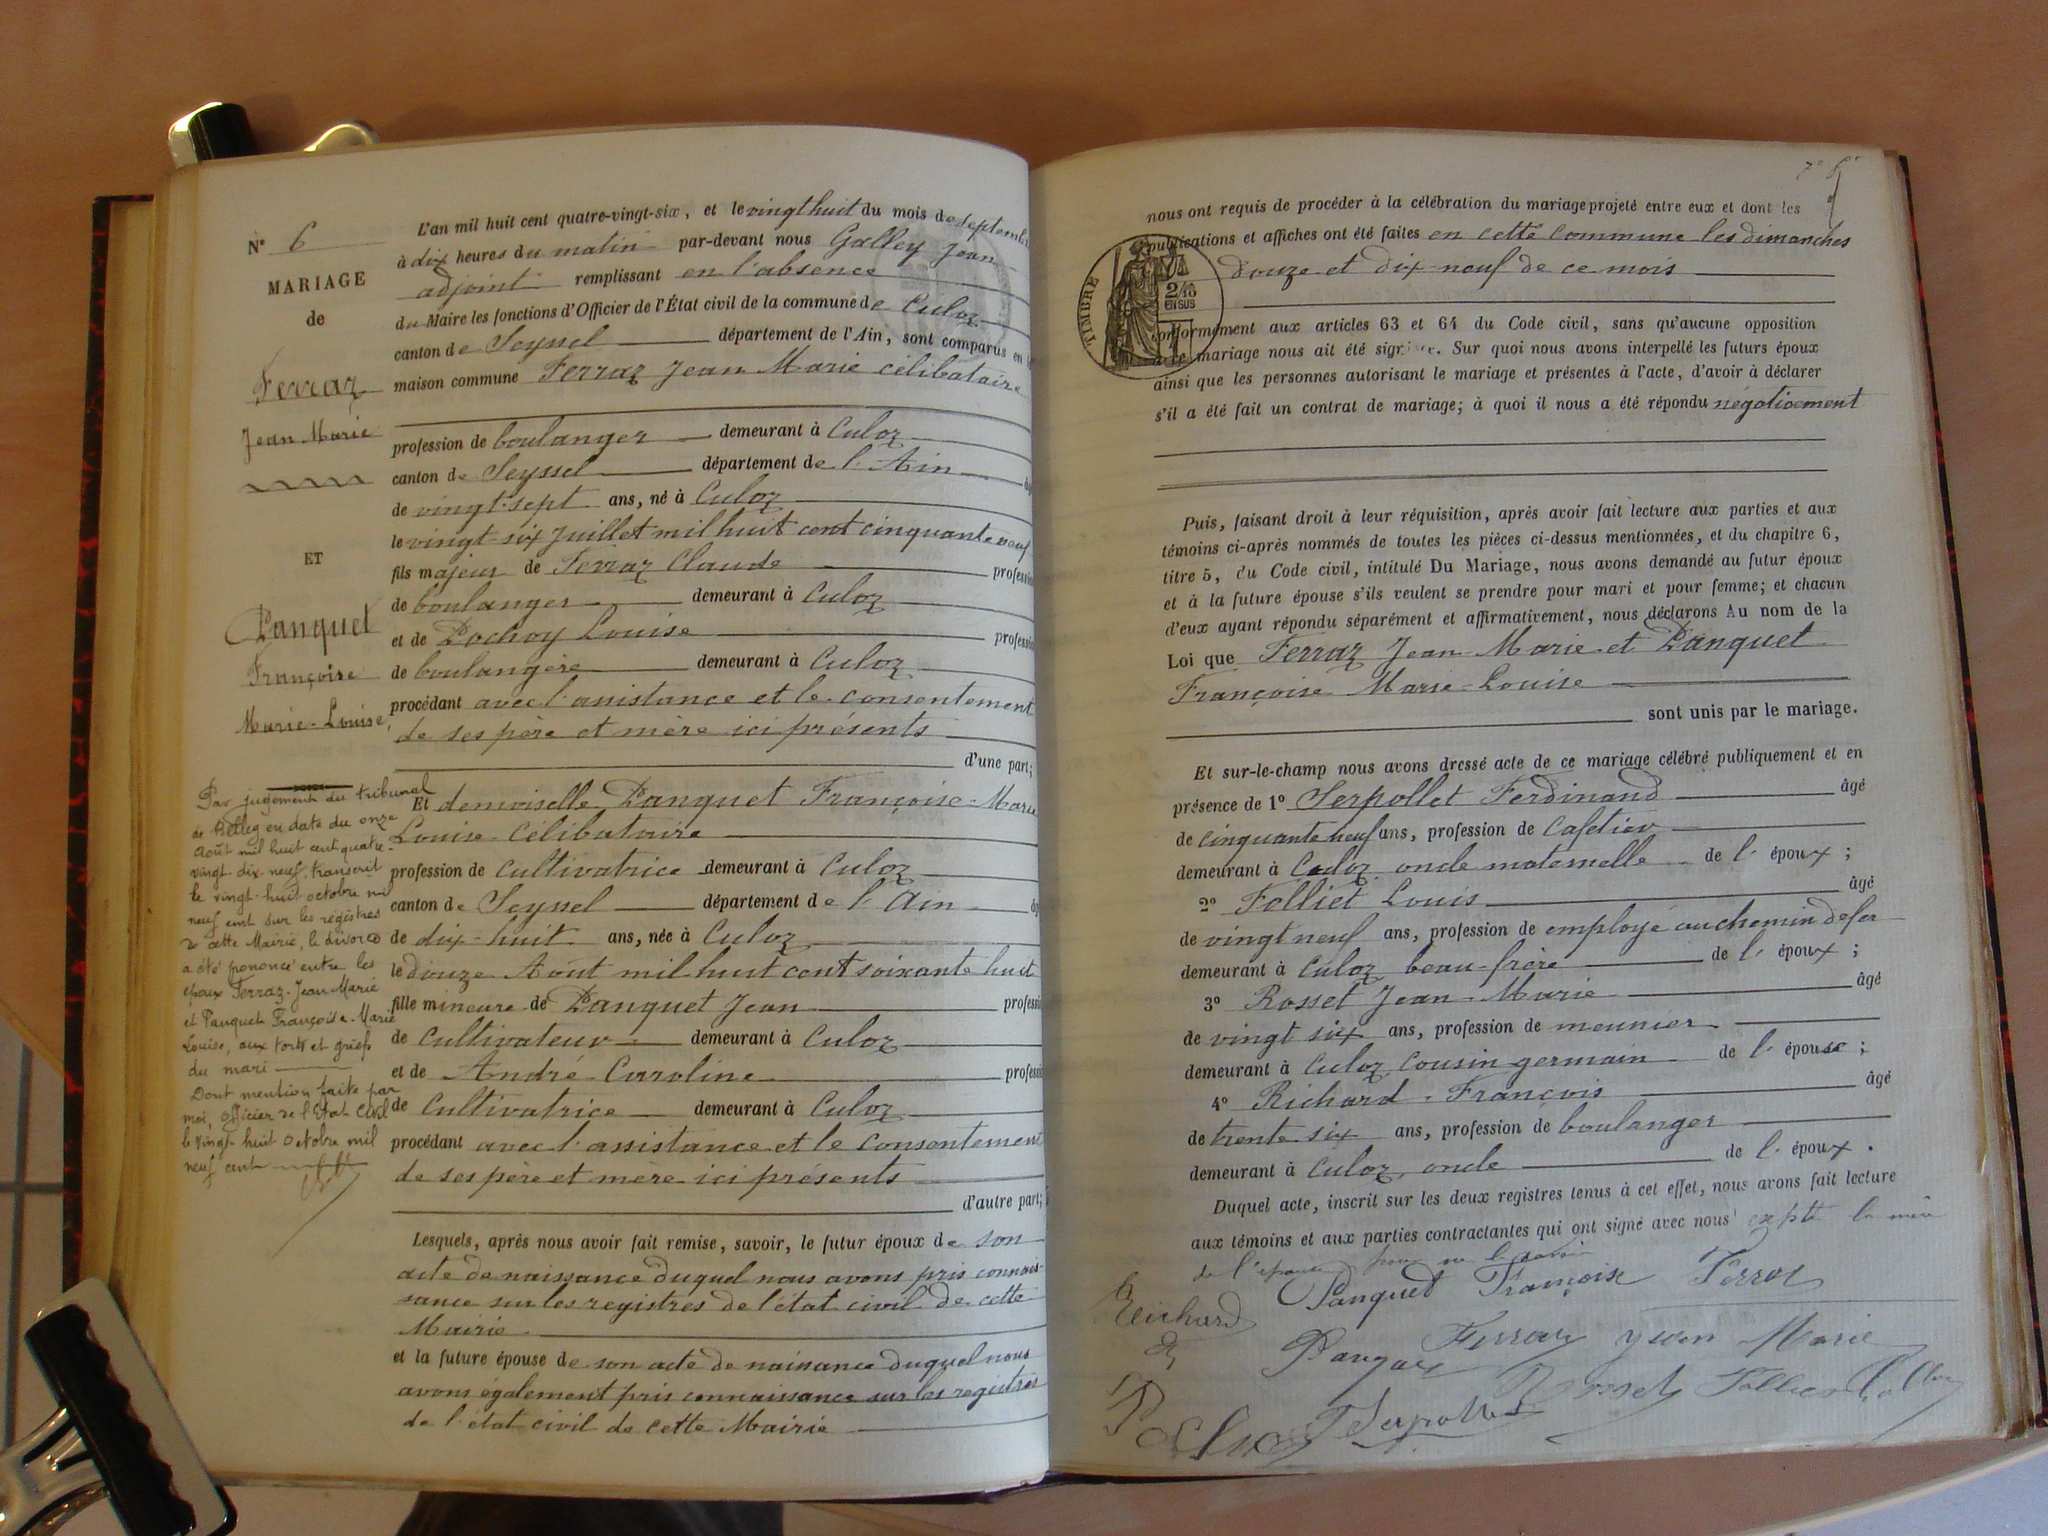 N° 6
MARIAGE
de
Ferraz
Jean Marie
ET
Panquet
Françoise
Marie-Louise
Par jugement du tribunal
de Belley en date du onze
Août mil huit cent quatre-
vingt-dix-neuf, transcrit
le vingt-huit octobre mil
neuf cent sur les régistres
de cette Mairie, le divorce
a été prononcé entre les
époux Ferraz-Jean Marie
et Panquet Françoise-Marie
Louise, aux torts et griefs
du mari
Dont mention faite par
moi, officier de l'Etat Civil
le vingt-huit octobre mil
neuf cent
L'an mil huit cent quatre-vingt-six, et le vingt huit du mois de septembre
à dix heures du matin par-devant nous Galley Jean
adjoint remplissant en l'absence
du Maire les fonctions d'Officier de l'État civil de la commune de Culoz
canton de Seyssel département de l'Ain, sont comparus en la
maison commune Ferraz Jean Marie célibataire
profession de boulanger demeurant à Culoz
canton de Seyssel département de l'Ain âgé
de vingt-sept ans, né à Culoz
le vingt-six Juillet mil huit cent cinquante neuf
fils majeur de Ferraz Claude profession
de boulanger demeurant à Culoz
et de Pochoy Louise profession
de boulangère demeurant à Culoz
procédant avec l'assistance et le consentement
de ses père et mère ici présents
d'une part;
Et demoiselle Panquet Françoise-Marie
Louise-Célibataire
profession de Cultivatrice demeurant à Culoz
canton de Seyssel département de l'Ain âgé
de dix-huit ans, née à Culoz
le douze Août mil huit cent soixante huit
fille mineure de Panquet Jean profession
de Cultivateur demeurant à Culoz
et de André Caroline profession
de Cultivatrice demeurant à Culoz
procédant avec l'assistance et le consentement
de ses père et mère ici présents
d'autre part;
Lesquels, après nous avoir fait remise, savoir, le futur époux de son
acte de naissance duquel nous avons pris connais-
sance sur les registres de l'état civil de cette
Mairie
et la future épouse de son acte de naissance duquel nous
avons également pris connaissance sur les registres
de l'état civil de cette Mairie
nous ont requis de procéder à la célébration du mariage projeté entre eux et dont les
publications et affiches ont été faites en cette commune les dimanches
douze et dix-neuf de ce mois
TIMBRE
2/10
EN SUS
conformément aux articles 63 et 64 du Code civil, sans qu'aucune opposition
mariage nous ait été signifiée. Sur quoi nous avons interpellé les futurs époux
ainsi que les personnes autorisant le mariage et présentes à l'acte, d'avoir à déclarer
s'il a été fait un contrat de mariage; à quoi il nous a été répondu négativement
Puis, faisant droit à leur réquisition, après avoir fait lecture aux parties et aux
témoins ci-après nommés de toutes les pièces ci-dessus mentionnées, et du chapitre 6,
titre 5, du Code civil, intitulé Du Mariage, nous avons demandé au futur époux
et à la future épouse s'ils veulent se prendre pour mari et pour femme; et chacun
d'eux ayant répondu séparément et affirmativement, nous déclarons Au nom de la
Loi que Ferraz Jean-Marie et Panquet
Françoise Marie-Louise
sont unis par le mariage.
Et sur-le-champ nous avons dressé acte de ce mariage célébré publiquement et en
présence de 1° Serpollet Ferdinand âgé
de cinquante neuf ans, profession de Cafetier
demeurant à Culoz oncle maternelle de l'époux;
2° Folliet Louis âgé
de vingt neuf ans, profession de employé au chemin de fer
demeurant à Culoz beau-frère de l'époux;
3° Rosset Jean-Marie âgé
de vingt six ans, profession de meunier
demeurant à Culoz Cousin germain de l'épouse;
4° Richard-François âgé
de trente six ans, profession de boulanger
demeurant à Culoz, oncle de l'époux.
Duquel acte, inscrit sur les deux registres tenus à cet effet, nous avons fait lecture
aux témoins et aux parties contractantes qui ont signé avec nous excepté la mère
de l'époux pour ne le savoir
Panquet Françoise Ferraz
Richard
Ferraz Jean Marie
Rosset Folliet
F Serpollet